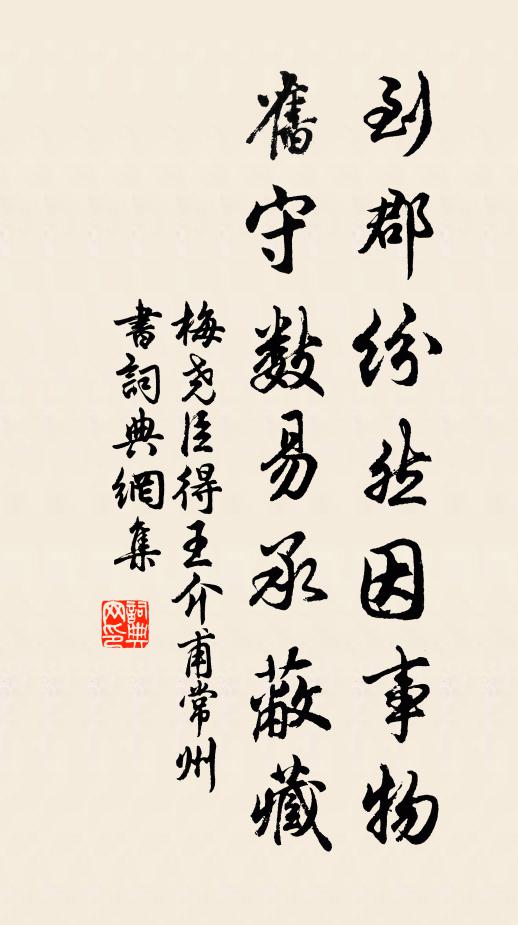 到郡紛然因事物
舊守數易承蔽藏
梅堯臣得王介甫常州
書詞典網集
詞典
网印